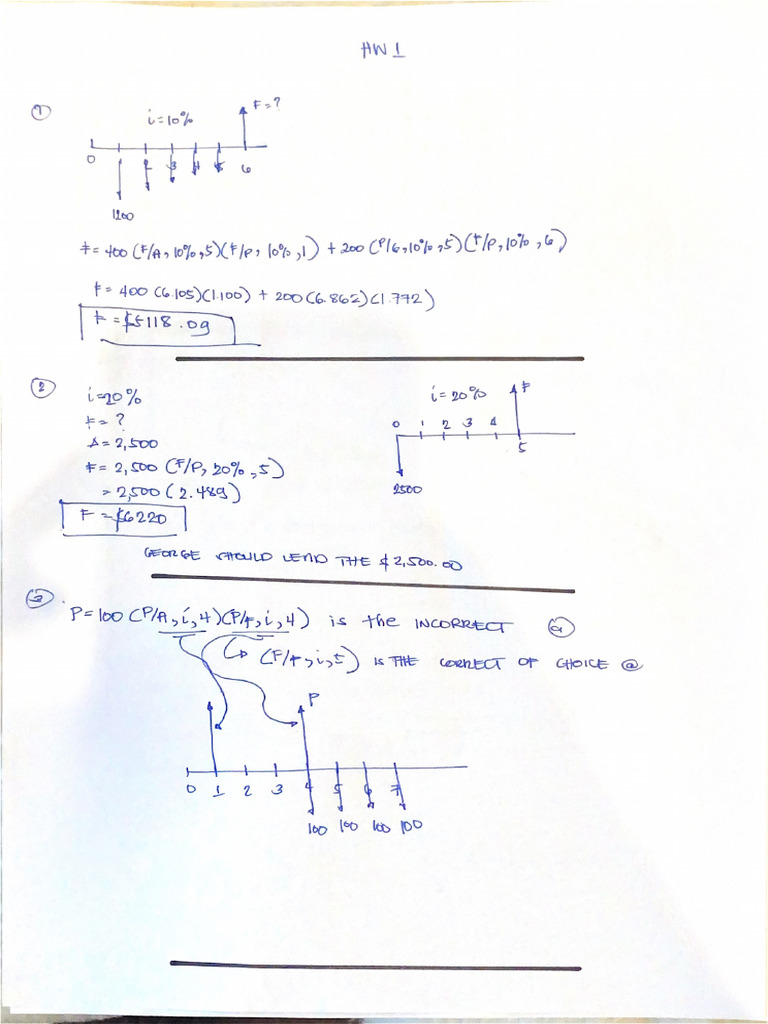 HW 1
①
i=10%
F=?
0 2 3 4 5 6
1200
F= 400 (F/A, 10%, 5)(F/P, 10%, 1) + 200 (P/G, 10%, 5)(F/P, 10%, 6)
F= 400 (6.105)(1.100) + 200 (6.862)(1.772)
F = $5118.09
②
i=20%
i= 20%
F
F= ?
0 1 2 3 4
A= 2,500
5
F= 2,500 (F/P, 20%, 5)
= 2,500 (2.489)
2500
F = $6220
GEORGE SHOULD LEND THE $2,500.00
③
P=100 (P/A, i, 4)(P/F, i, 4) is the INCORRECT ⓐ
IS THE CORRECT OF CHOICE ⓐ
P
0 1 2 3 4 5 6 7
100 100 100 100